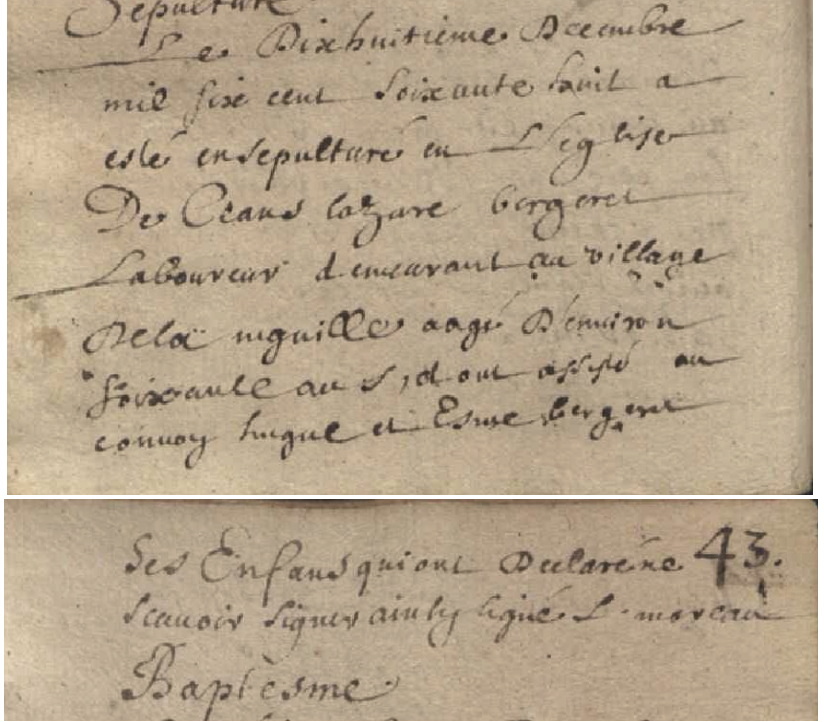 Sepulture
Le Dixhuitieme Decembre
mil six cent soixante huit a
esté ensepulturé en L'Eglise
De Ceans lazare bergeret
Laboureur demeurant au village
Dela inguille aagé D'environ
soixante ans, et ont assisté au
convoy hugue et Esme bergeret
ses Enfans qui ont Declaré ne 43.
scavoir signer ainsy signé L. moreau
Baptesme